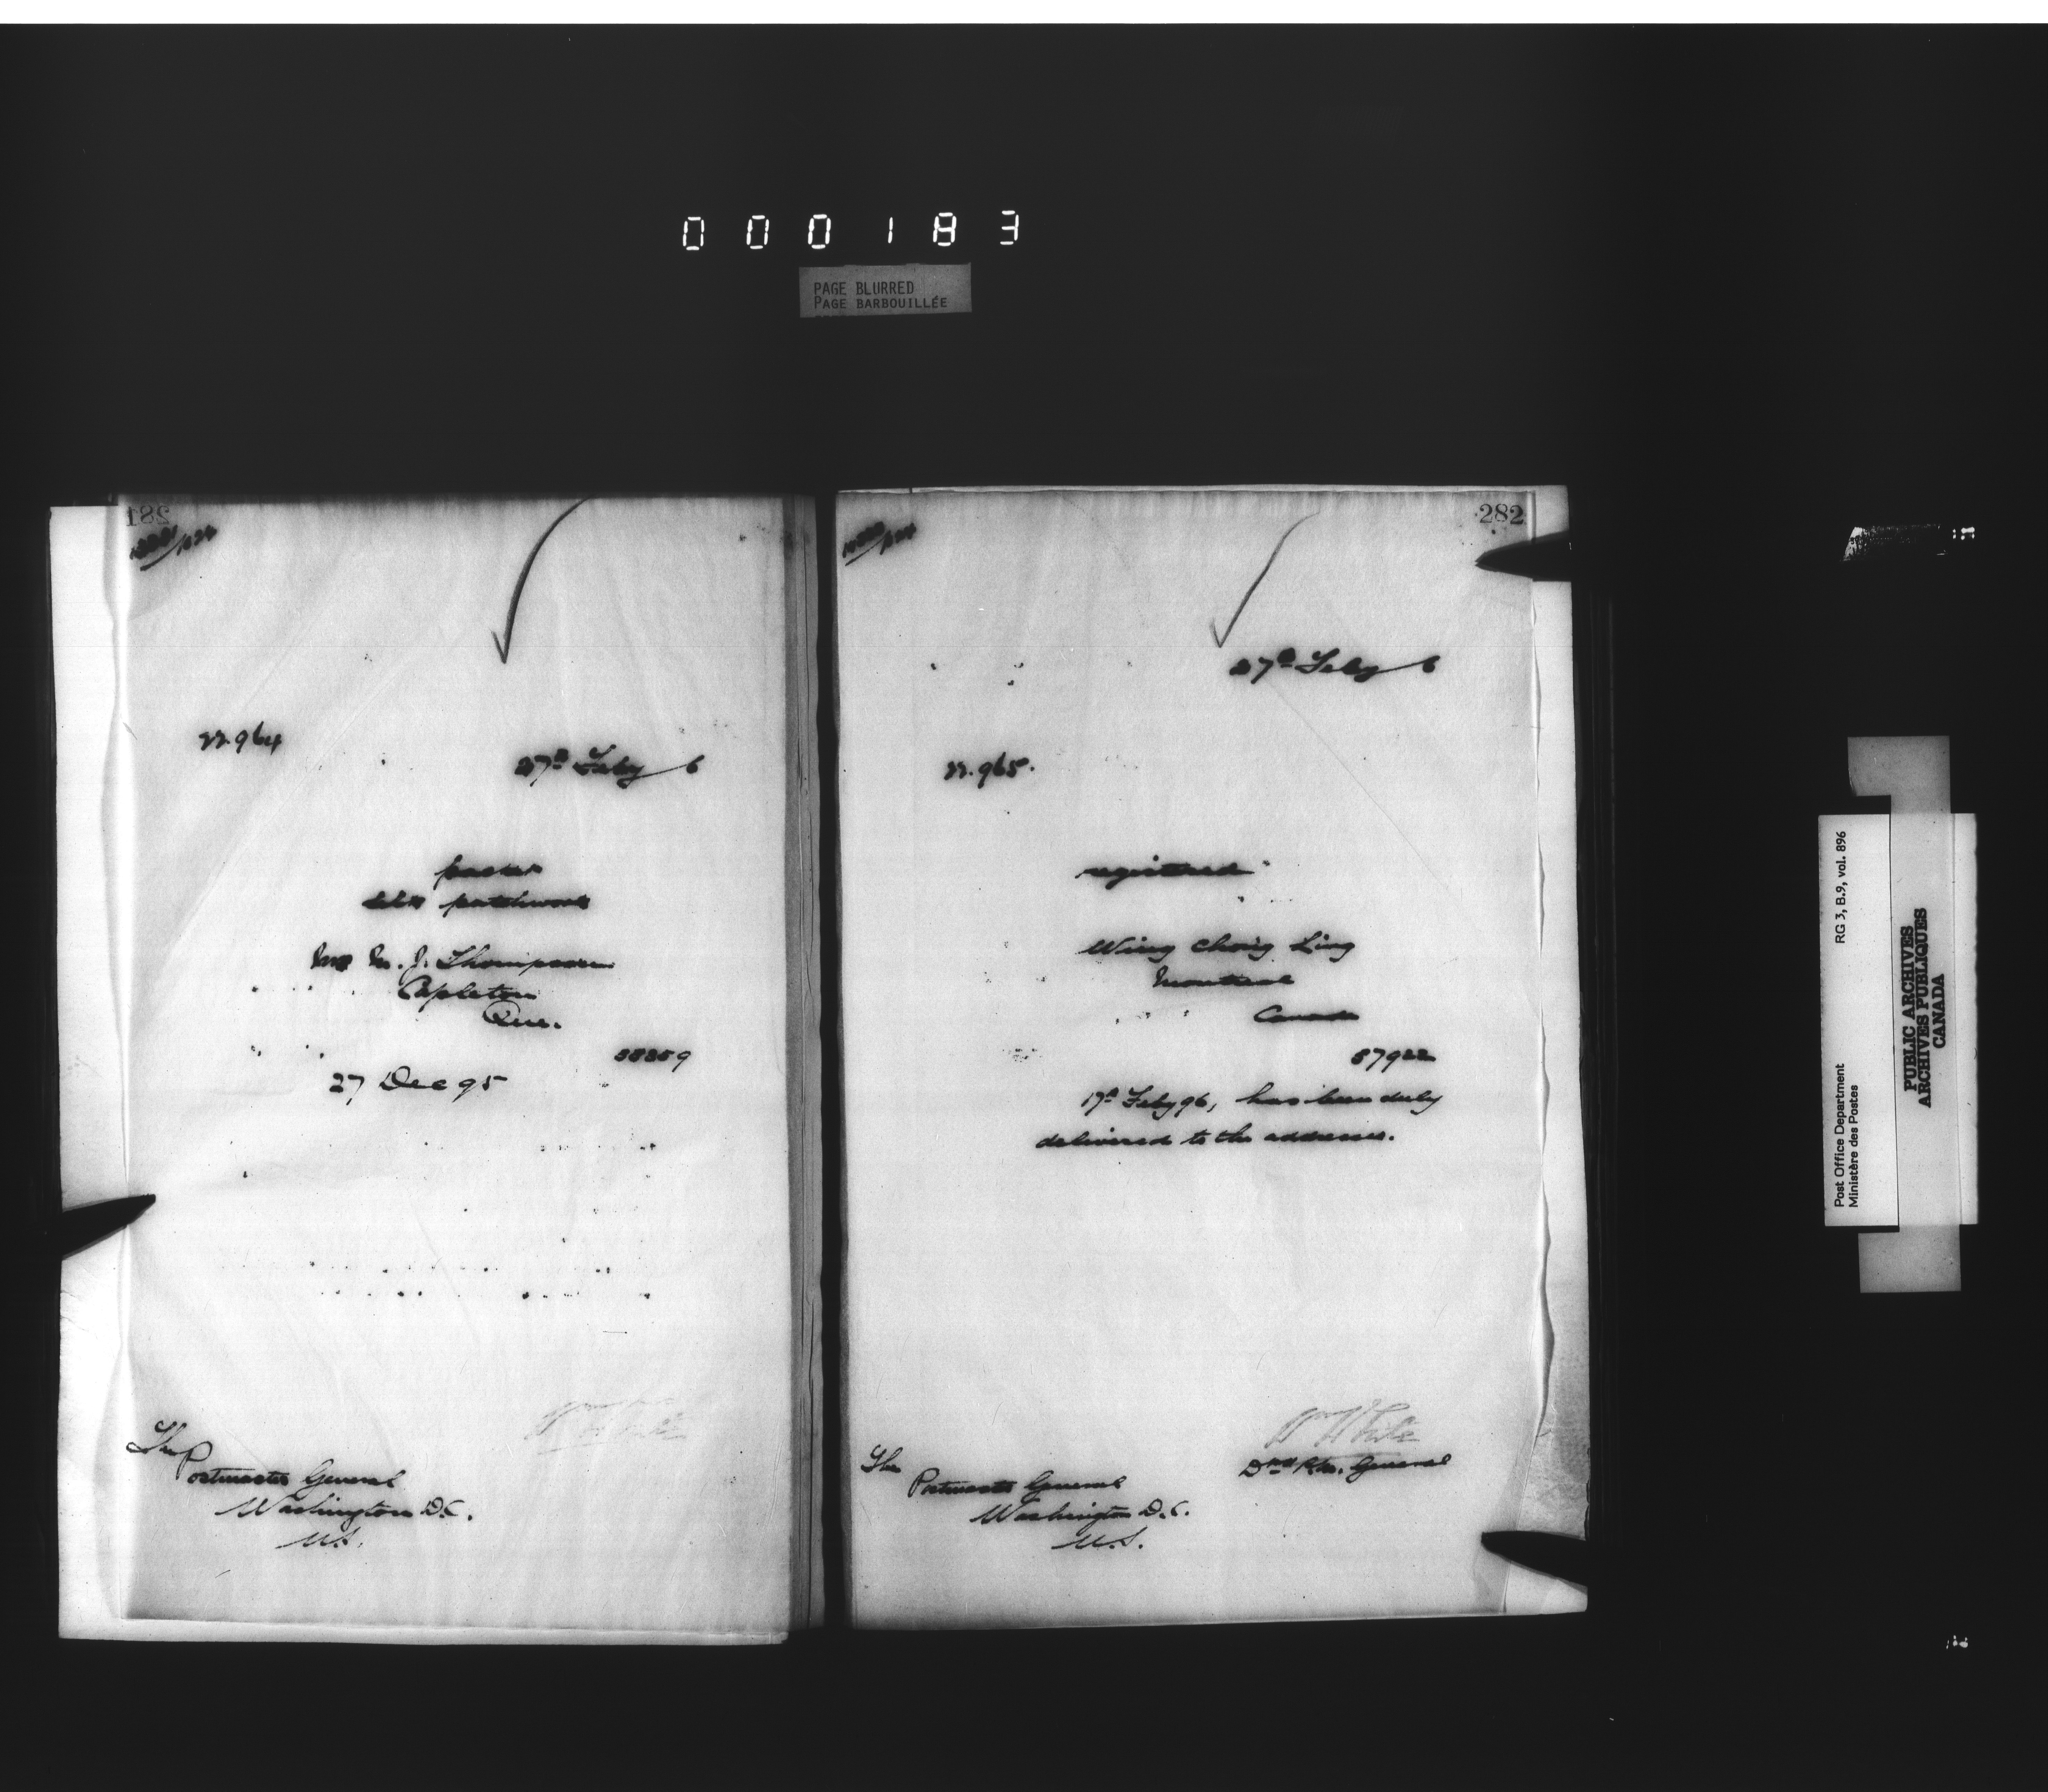 000183
PAGE BLURRED
PAGE BARBOUILLÉE
281
22.964
27th Feby 6
packet
silk patchwork
M. J. Thompson
Capleton
Que.
27 Dec 95
Wm White
The
Postmaster General
Washington D.C.
U.S.
282
27th Feby 6
22.965.
registered
Wing Chong Ling
Montreal
Canada
57922
17th Feby 96, has been duly
delivered to the addressee.
Wm White
General
The
Postmaster General
Washington D.C.
U.S.
Post Office Department
Ministère des Postes
RG 3, B.9, vol. 896
PUBLIC ARCHIVES
ARCHIVES PUBLIQUES
CANADA